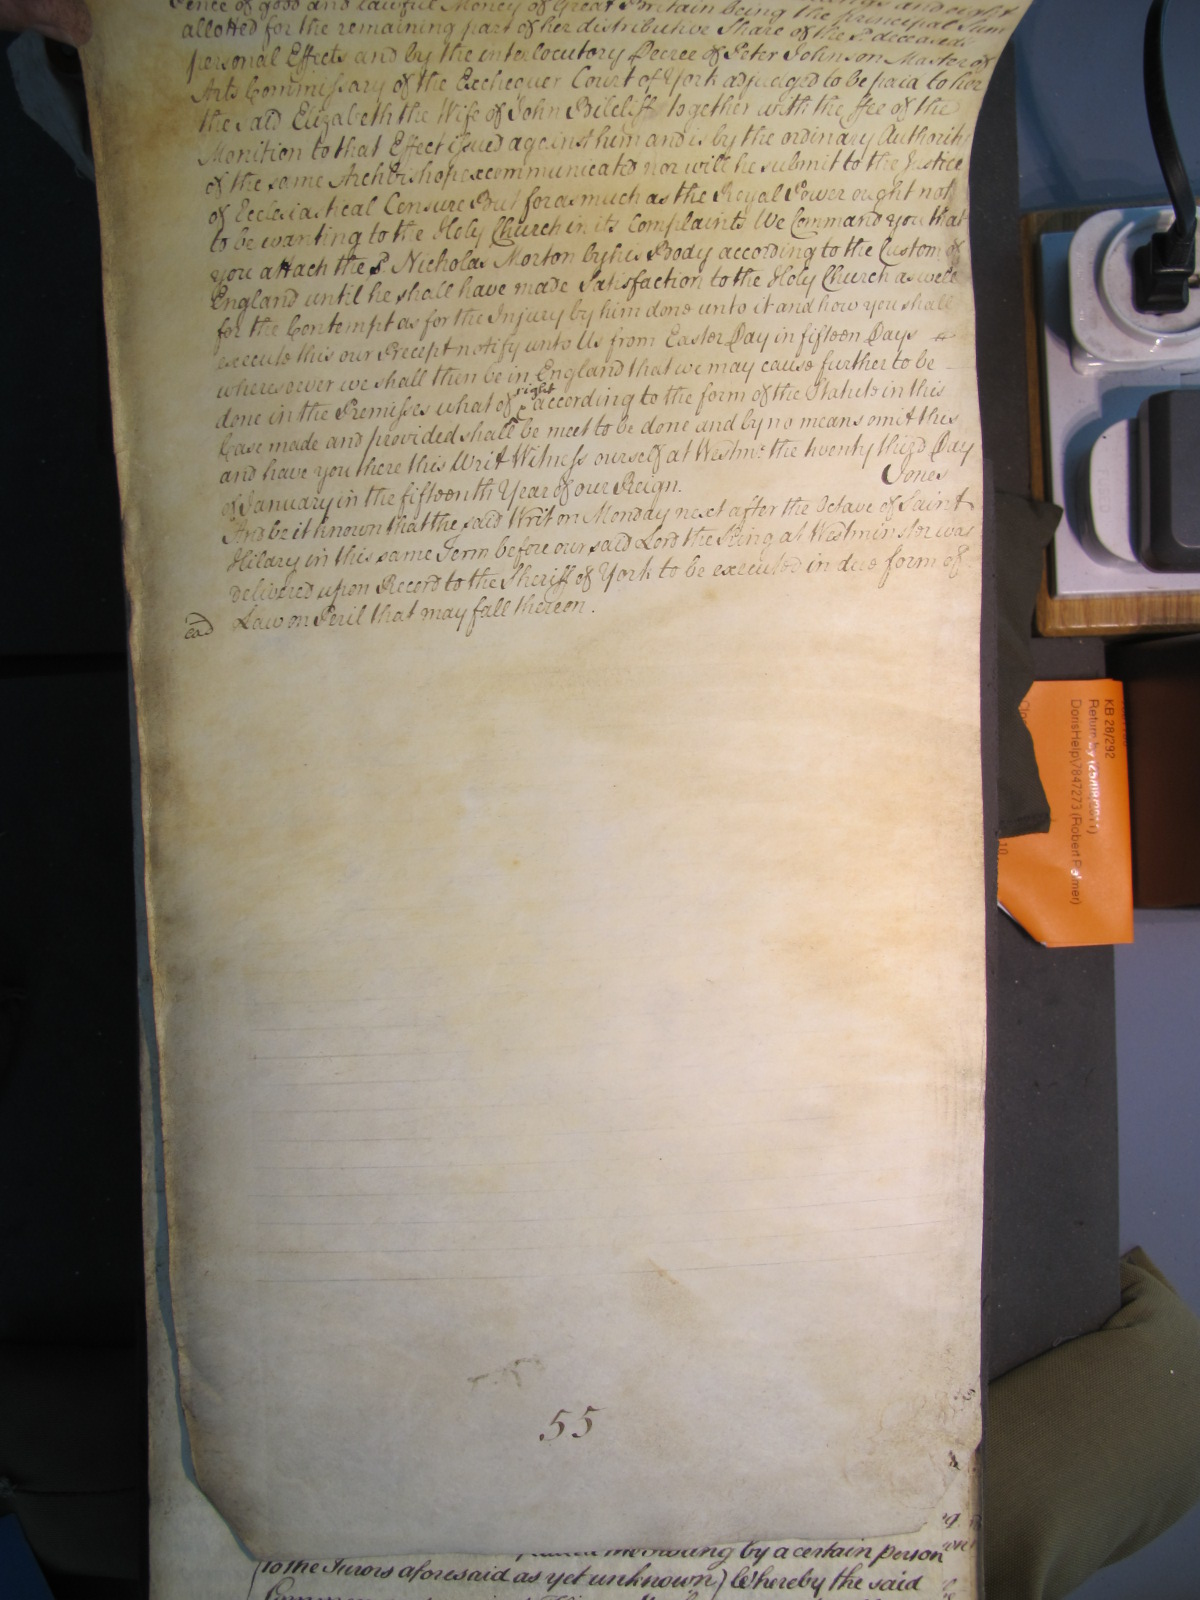 Pence of good and lawful Money of Great Britain being the principal Sum
allotted for the remaining part of her distributive Share of the sd. deceaseds
personal Effects and by the interlocutory Decree of Peter Johnson Master of
Arts Commissary of the Exchequer Court of York adjudged to be paid to her
the said Elizabeth the Wife of John Bilcliff together with the ffee of the
Monition to that Effect issued against him and is by the ordinary Authority
of the same Archbishop excommunicated nor will he submit to the Justice
of Ecclesiastical Censure But forasmuch as the Royal Power ought not
to be wanting to the Holy Church in its Complaints We Command you that
you attach the sd. Nicholas Morton by his Body according to the Custom of
England until he shall have made Satisfaction to the Holy Church as well
for the Contempt as for the Injury by him done unto it and how you shall
execute this our Precept notify unto Us from Easter Day in fifteen Days
wheresoever we shall then be in England that we may cause further to be
done in the Premisses what of right according to the form of the Statute in this
Case made and provided shall be meet to be done and by no means omit this
and have you there this Writ Witness ourself at Westmr. the twenty third Day
of January in the fifteenth Year of our Reign. Jones
And be it known that the said Writ on Monday next after the Octave of Saint
Hilary in this same Term before our said Lord the King at Westminster was
delivered upon Record to the Sheriff of York to be executed in due form of
Law on Peril that may fall thereon.
ead
55
by a certain person
(to the Jurors aforesaid as yet unknown) Whereby the said
KB 28/292
Return by
DorisHelp\7847273 (Robert Palmer)